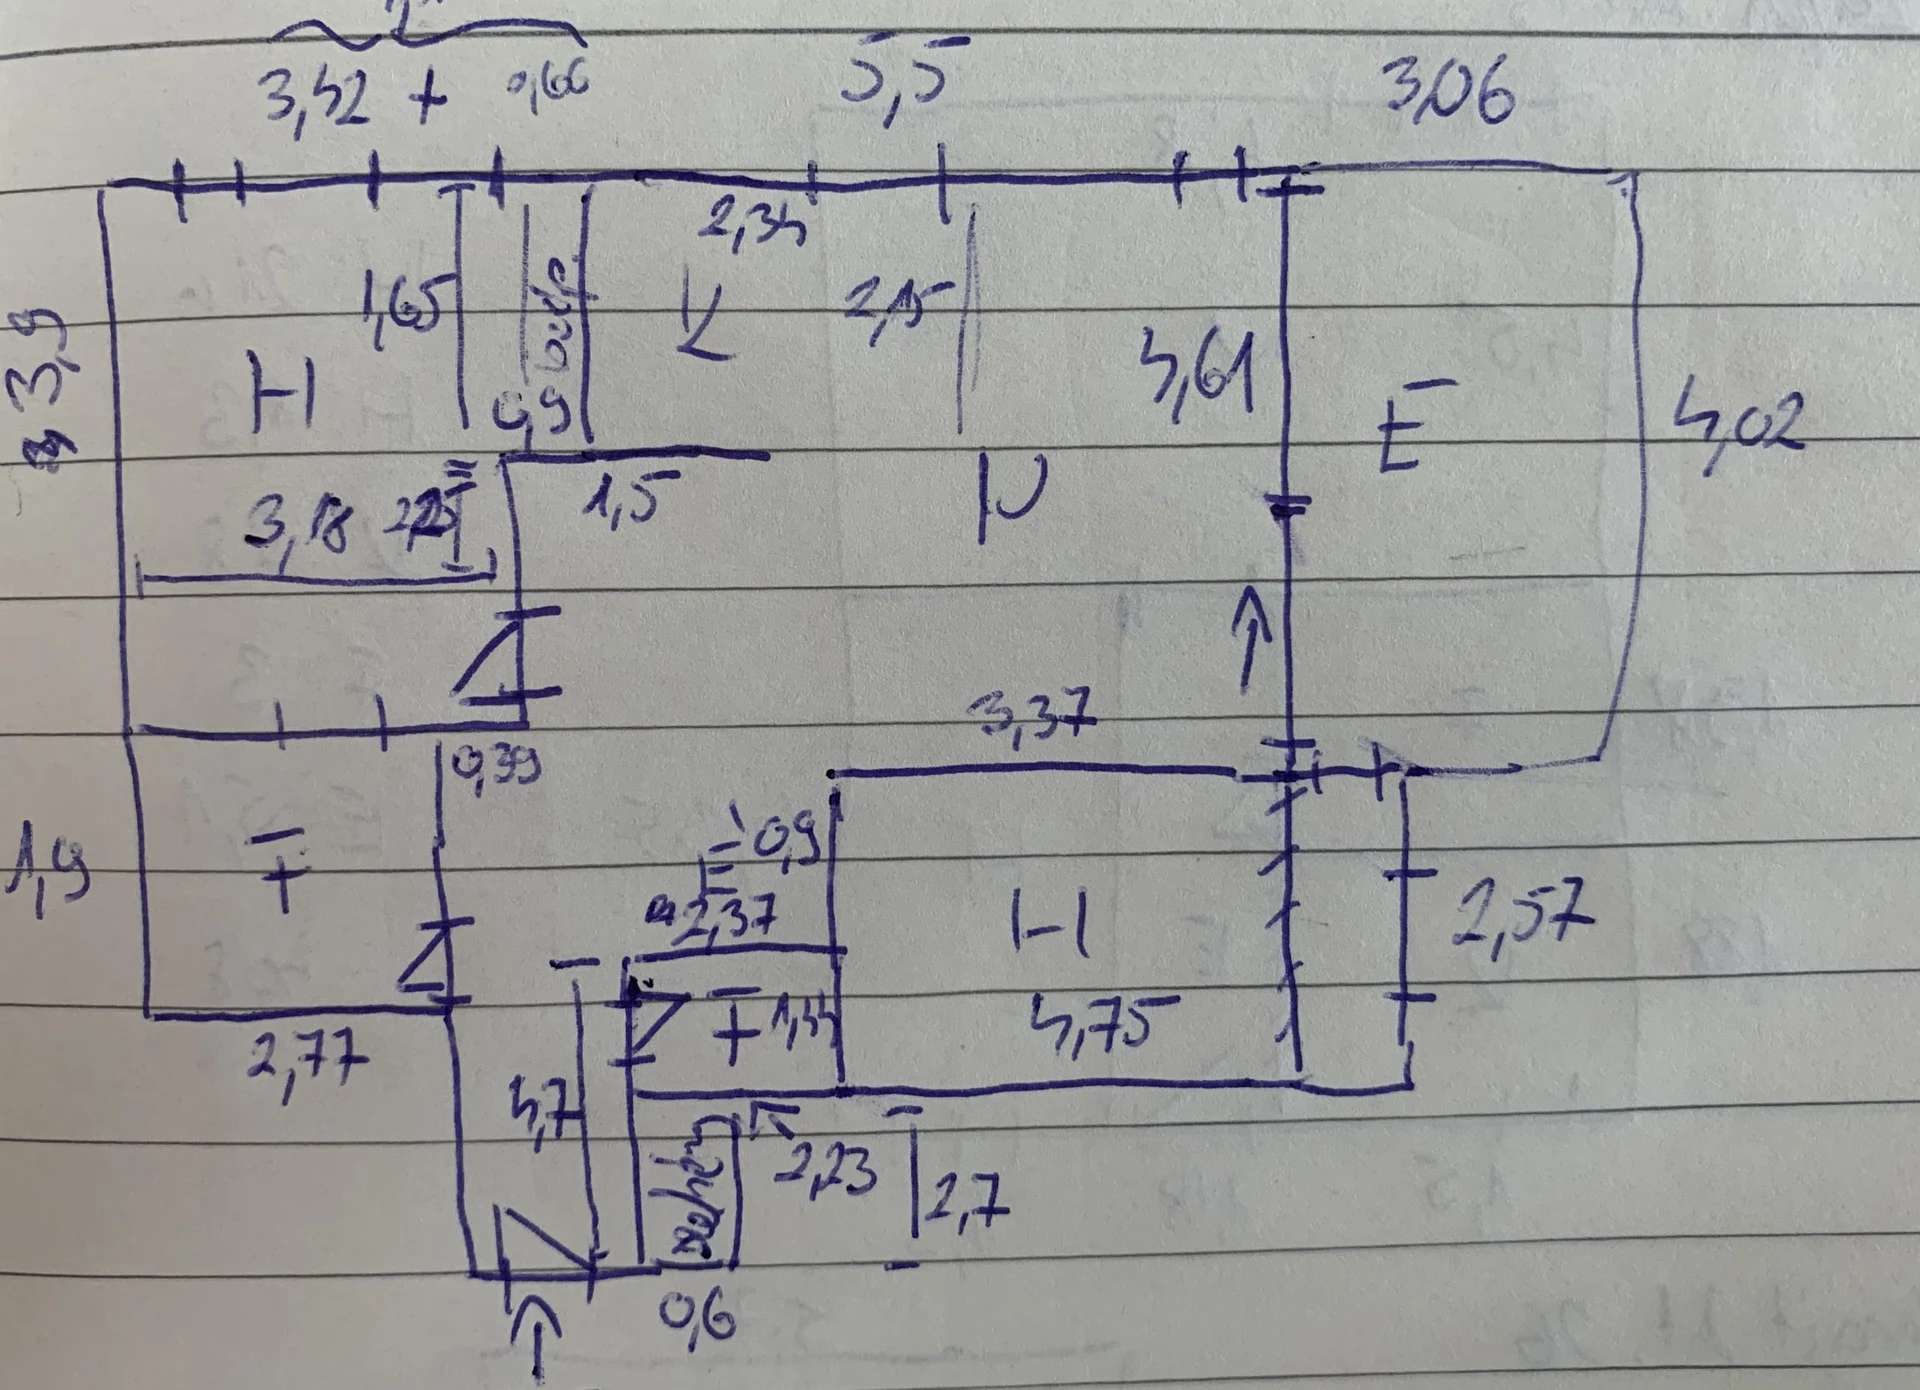 3,42 + 0,66
5,5
3,06
2,34
1,65
K
2,15
3,9
H
0,9
4,61
E
4,02
3,18
1,5
N
3,37
0,39
1,9
T
0,9
2,37
H
2,57
T
1,34
4,75
2,77
4,7
2,23
2,7
0,6